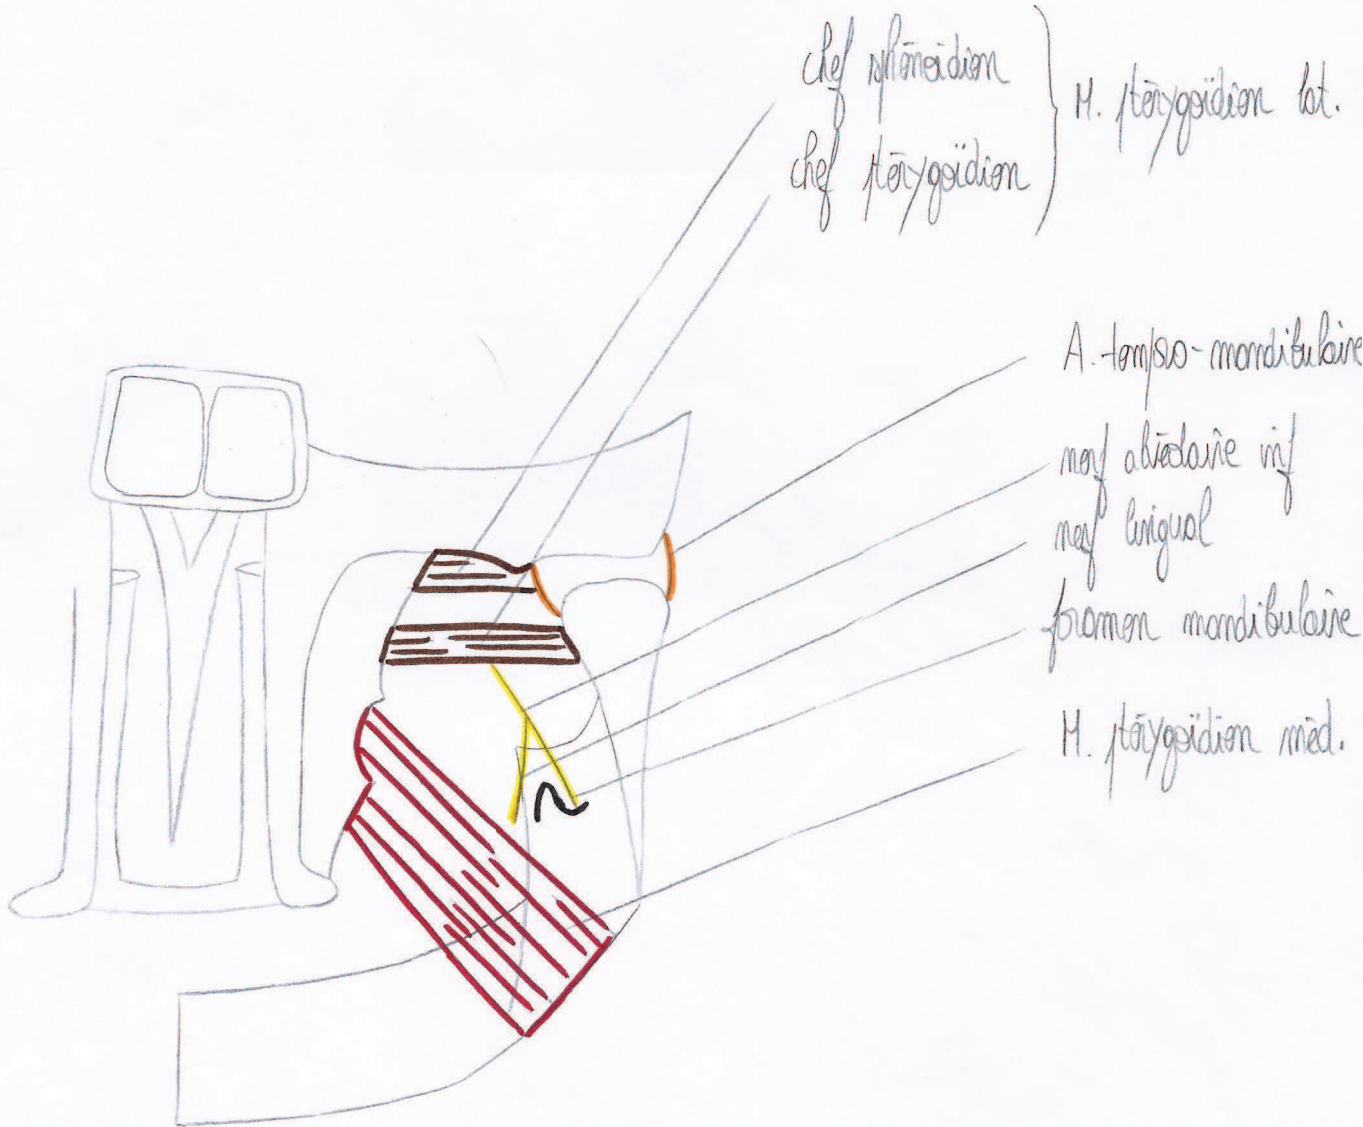 chef sphénoïdien
chef ptérygoïdien
M. ptérygoïdien lat.
A. tempo-mandibulaire
nerf alvéolaire inf
nerf lingual
foramen mandibulaire
M. ptérygoïdien méd.